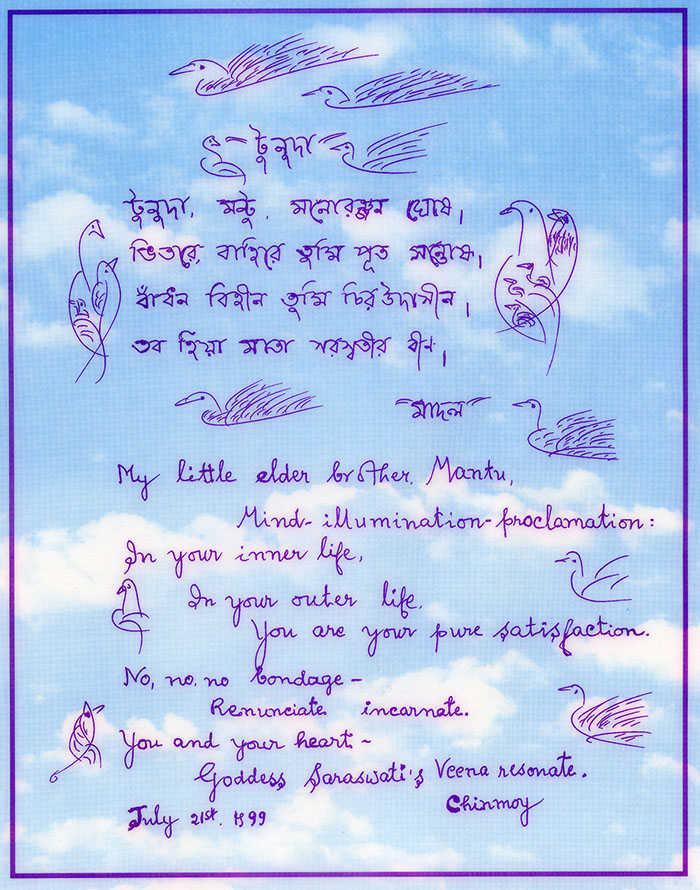 টুনুদা
টুনুদা, মন্টু, মনোরঞ্জন ঘোষ।
ভিতরে, বাহিরে তুমি পূত সন্তোষ।
বাঁধন বিহীন তুমি চির উদাসীন।
তব হিয়া মাতা সরস্বতীর বীন।
মাদল
My little elder brother, Mantu,
Mind-illumination-proclamation:
In your inner life,
In your outer life,
You are your pure satisfaction.
No, no, no bondage –
Renunciate incarnate.
You and your heart –
Goddess Saraswati's Veena resonate.
July 21st, 1999
Chinmoy